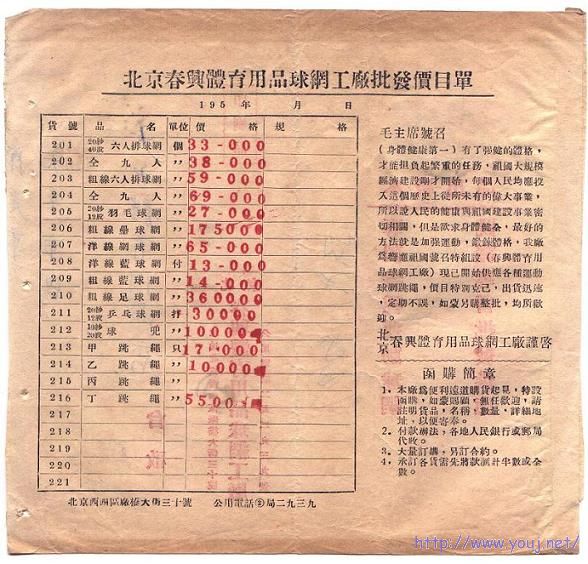 北京春興體育用品球網工廠批發價目單
195 年 月 日
貨號 品名 單位 價格 規格
201 20紗40股 六人排球網 個 33-000
202 仝 九人 〃 38-000
203 粗線六人排球網 〃 59-000
204 仝 九人 〃 69-000
205 20紗12股 羽毛球網 〃 27-000
206 粗線壘球網 〃 175000
207 洋線網球網 〃 65-000
208 洋線籃球網 付 13-000
209 粗線籃球網 〃 14-000
210 粗線足球網 〃 360000
211 20紗12股 乒乓球網 打 30000
212 球兜 〃 10000
213 甲跳繩 只 17-000
214 乙跳繩 〃 10000
215 丙跳繩 〃
216 丁跳繩 〃 5500
217
218
219
220
221
北京西四區廠橋大街三十號 公用電話②局二九三九
毛主席號召
（身體健康第一）有了强健的體格，
才能担負起繁重的任務，祖國大規模
經濟建設剛才開始，每個人民均應投
入這個歷史上從所未有的偉大事業，
所以說人民的健康與祖國建設事業密
切相關，但是欲求身體健全，最好的
方法就是加强運動，鍛鍊體格，我廠
爲響應祖國號召特組設（春興體育用
品球網工廠）現已開始供應各種運動
球網跳繩，價目特別克己，出貨迅速，
定期不誤，如蒙另購整批，均所歡
迎。
北京 春興體育用品球網工廠謹啓
函購簡章
1、本廠爲便利遠道購貨起見，特設
函購，如蒙賜顧，無任歡迎，請
註明貨品，名稱，數量，詳細地
址，以便寄奉。
2、付款辦法，各地人民銀行或郵局
代收。
3、大量訂購，另訂合約。
4、承訂各貨需先將款滙計半數或全
數。
http://www.youj.net/